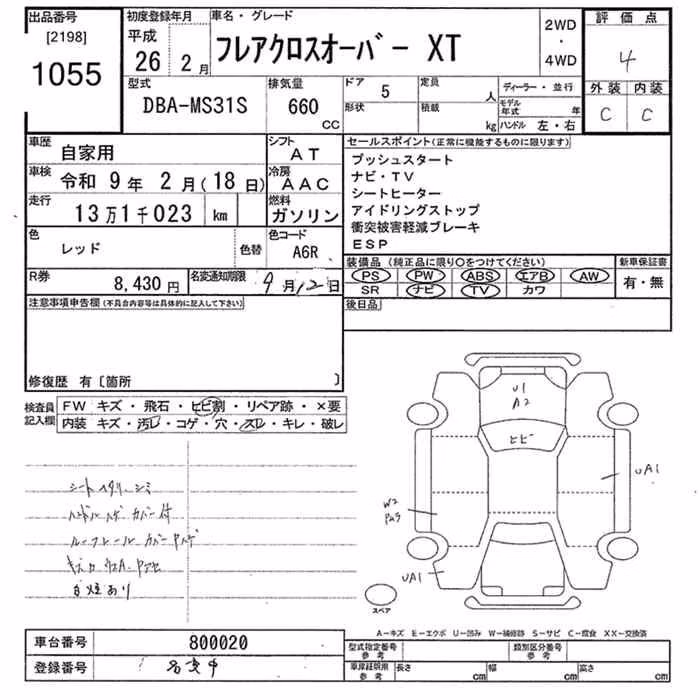 出品番号 初度登録年月 車名・グレード 2WD ・ 4WD 評価点
[2198] 1055 平成 26 2月 フレアクロスオーバー XT 4
型式 排気量 ドア 5 定員 人 ディーラー・並行 外装 内装
DBA-MS31S 660 CC 形状 積載 kg モデル年式 年 ハンドル 左・右 C C
車歴 自家用 シフト AT セールスポイント(正常に機能するものに限ります)
車検 令和 9年 2月(18日) 冷房 AAC
走行 13万1千023 km 燃料 ガソリン
プッシュスタート
ナビ・TV
シートヒーター
アイドリングストップ
衝突被害軽減ブレーキ
ESP
色 レッド 色替 色コード A6R
装備品 (純正品に限り○をつけてください) 新車保証書
PS PW ABS エアB AW 有・無
SR ナビ TV カワ
R券 8,430円 名変通知期限 9月12日
注意事項申告欄(不具合内容等は具体的に記入して下さい) 後日品
修復歴 有〔箇所 〕
検査員記入欄 FW キズ・飛石・ヒビ割・リペア跡・×要
内装 キズ・汚レ・コゲ・穴・スレ・キレ・破レ
ハンドルハゲ カバー付
白煙あり
U1
A2
ヒビ
UA1
W2
UA1
スペア
A-キズ E-エクボ U-凹み W-補修跡 S-サビ C-腐食 XX-交換済
車台番号 800020 型式指定番号 参考 類別区分番号 参考
登録番号 名変中 車庫証明用 参考 長さ cm 幅 cm 高さ cm